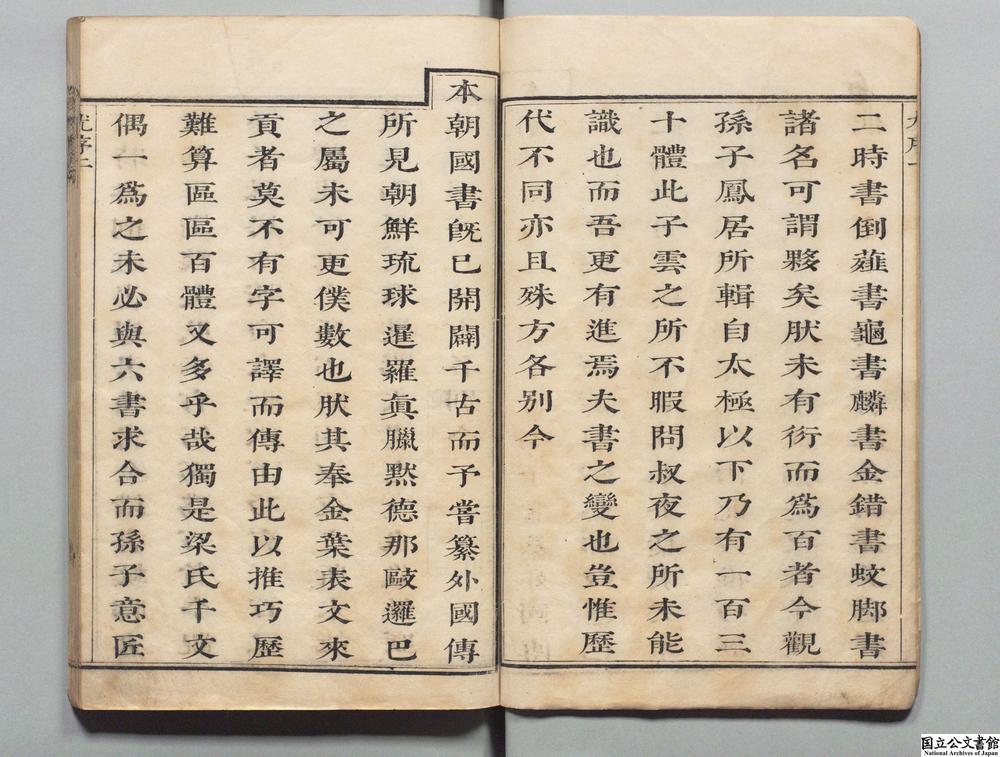 二時書倒薤書龜書麟書金錯書蚊脚書
諸名可謂夥矣肰未有衍而爲百者今觀
孫子鳳居所輯自太極以下乃有一百三
十體此子雲之所不暇問叔夜之所未能
識也而吾更有進焉夫書之變也豈惟歷
代不同亦且殊方各别今
本朝國書旣已開闢千古而予嘗纂外國傳
所見朝鮮琉球暹羅眞臘默德那歐邏巴
之屬未可更僕數也肰其奉金葉表文來
貢者莫不有字可譯而傳由此以推巧歷
難算區區百體又多乎哉獨是梁氏千文
偶一爲之未必與六書求合而孫子意匠
尤序二
国立公文書館
National Archives of Japan